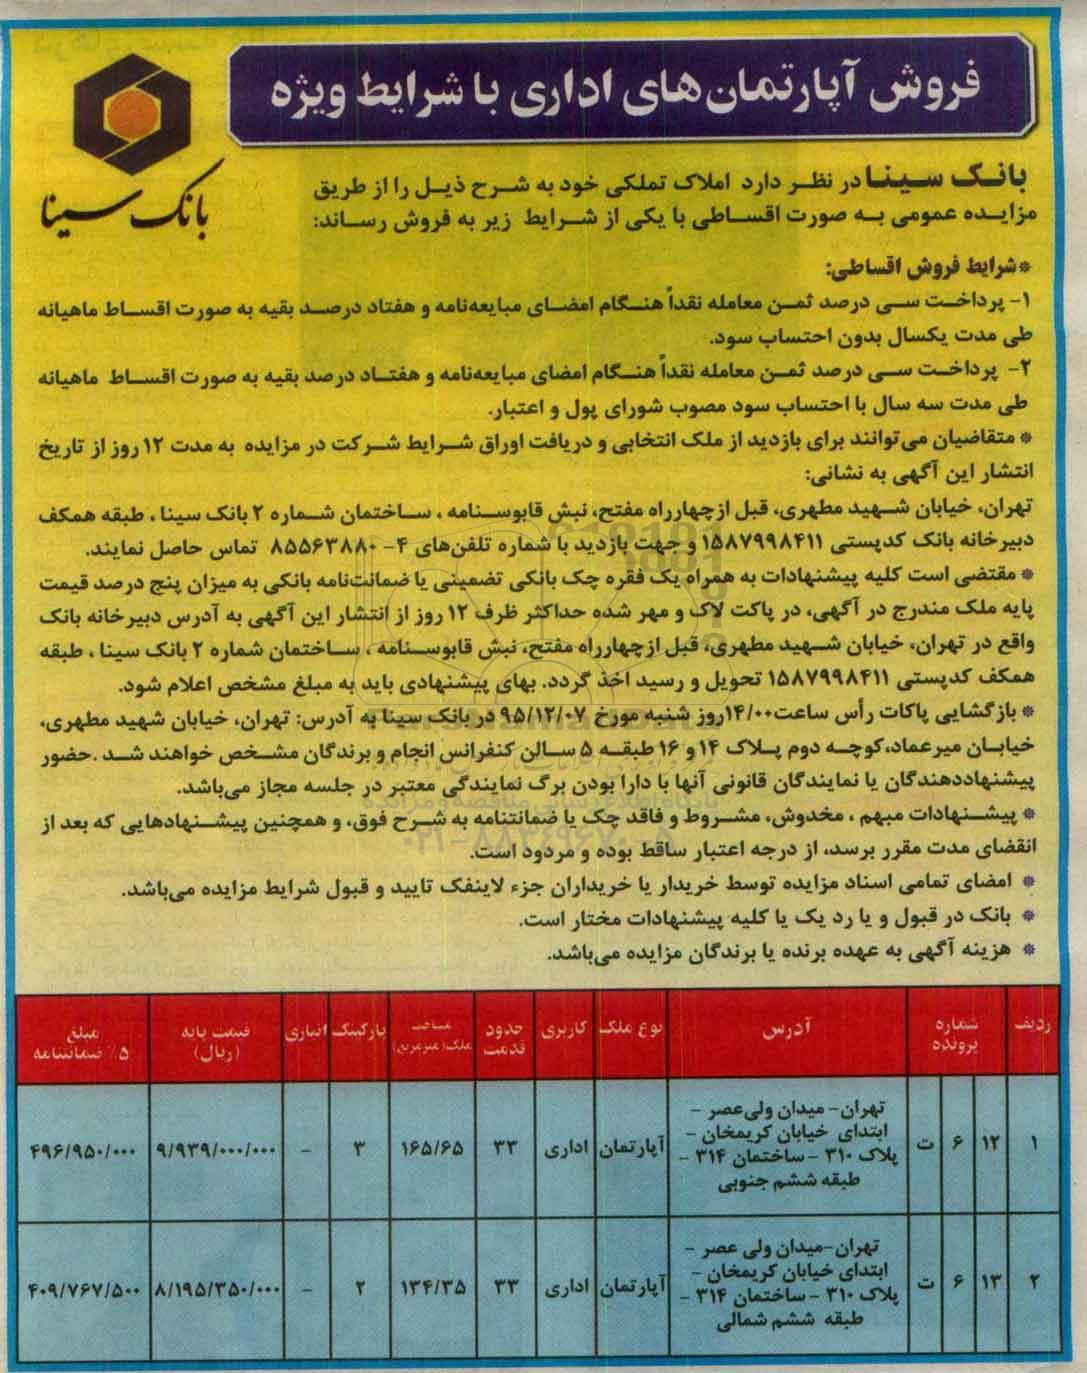 فروش آپارتمان‌های اداری با شرایط ویژه
بانک سینا
بانک سینا در نظر دارد املاک تملکی خود به شرح ذیل را از طریق
مزایده عمومی به صورت اقساطی با یکی از شرایط زیر به فروش رساند:
*شرایط فروش اقساطی:
۱- پرداخت سی درصد ثمن معامله نقداً هنگام امضای مبایعه‌نامه و هفتاد درصد بقیه به صورت اقساط ماهیانه
طی مدت یکسال بدون احتساب سود.
۲- پرداخت سی درصد ثمن معامله نقداً هنگام امضای مبایعه‌نامه و هفتاد درصد بقیه به صورت اقساط ماهیانه
طی مدت سه سال با احتساب سود مصوب شورای پول و اعتبار.
* متقاضیان می‌توانند برای بازدید از ملک انتخابی و دریافت اوراق شرایط شرکت در مزایده به مدت ۱۲ روز از تاریخ
انتشار این آگهی به نشانی:
تهران، خیابان شهید مطهری، قبل ازچهارراه مفتح، نبش قابوسنامه ، ساختمان شماره ۲ بانک سینا ، طبقه همکف
دبیرخانه بانک کدپستی ۱۵۸۷۹۹۸۴۱۱ و جهت بازدید با شماره تلفن‌های ۴- ۸۵۵۶۳۸۸۰ تماس حاصل نمایند.
* مقتضی است کلیه پیشنهادات به همراه یک فقره چک بانکی تضمینی یا ضمانت‌نامه بانکی به میزان پنج درصد قیمت
پایه ملک مندرج در آگهی، در پاکت لاک و مهر شده حداکثر ظرف ۱۲ روز از انتشار این آگهی به آدرس دبیرخانه بانک
واقع در تهران، خیابان شهید مطهری، قبل ازچهارراه مفتح، نبش قابوسنامه ، ساختمان شماره ۲ بانک سینا ، طبقه
همکف کدپستی ۱۵۸۷۹۹۸۴۱۱ تحویل و رسید اخذ گردد. بهای پیشنهادی باید به مبلغ مشخص اعلام شود.
* بازگشایی پاکات رأس ساعت ۱۴/۰۰روز شنبه مورخ ۹۵/۱۲/۰۷ در بانک سینا به آدرس: تهران، خیابان شهید مطهری،
خیابان میرعماد،کوچه دوم پلاک ۱۴ و ۱۶ طبقه ۵ سالن کنفرانس انجام و برندگان مشخص خواهند شد .حضور
پیشنهاددهندگان یا نمایندگان قانونی آنها با دارا بودن برگ نمایندگی معتبر در جلسه مجاز می‌باشد.
* پیشنهادات مبهم ، مخدوش، مشروط و فاقد چک یا ضمانتنامه به شرح فوق، و همچنین پیشنهادهایی که بعد از
انقضای مدت مقرر برسد، از درجه اعتبار ساقط بوده و مردود است.
* امضای تمامی اسناد مزایده توسط خریدار یا خریداران جزء لاینفک تایید و قبول شرایط مزایده می‌باشد.
* بانک در قبول و یا رد یک یا کلیه پیشنهادات مختار است.
* هزینه آگهی به عهده برنده یا برندگان مزایده می‌باشد.
ردیف شماره پرونده آدرس نوع ملک کاربری حدود قدمت مساحت ملک(مترمربع) پارکینگ انباری قیمت پایه (ریال) مبلغ ۵٪ ضمانتنامه
۱ ۱۲ ۶ ت تهران- میدان ولی‌عصر -
ابتدای خیابان کریمخان -
پلاک ۳۱۰ - ساختمان ۳۱۴ -
طبقه ششم جنوبی
آپارتمان اداری ۳۳ ۱۶۵/۶۵ ۳ - ۹/۹۳۹/۰۰۰/۰۰۰ ۴۹۶/۹۵۰/۰۰۰
۲ ۱۳ ۶ ت تهران-میدان ولی عصر -
ابتدای خیابان کریمخان -
پلاک ۳۱۰ - ساختمان ۳۱۴ -
طبقه ششم شمالی
آپارتمان اداری ۳۳ ۱۳۴/۳۵ ۲ - ۸/۱۹۵/۳۵۰/۰۰۰ ۴۰۹/۷۶۷/۵۰۰